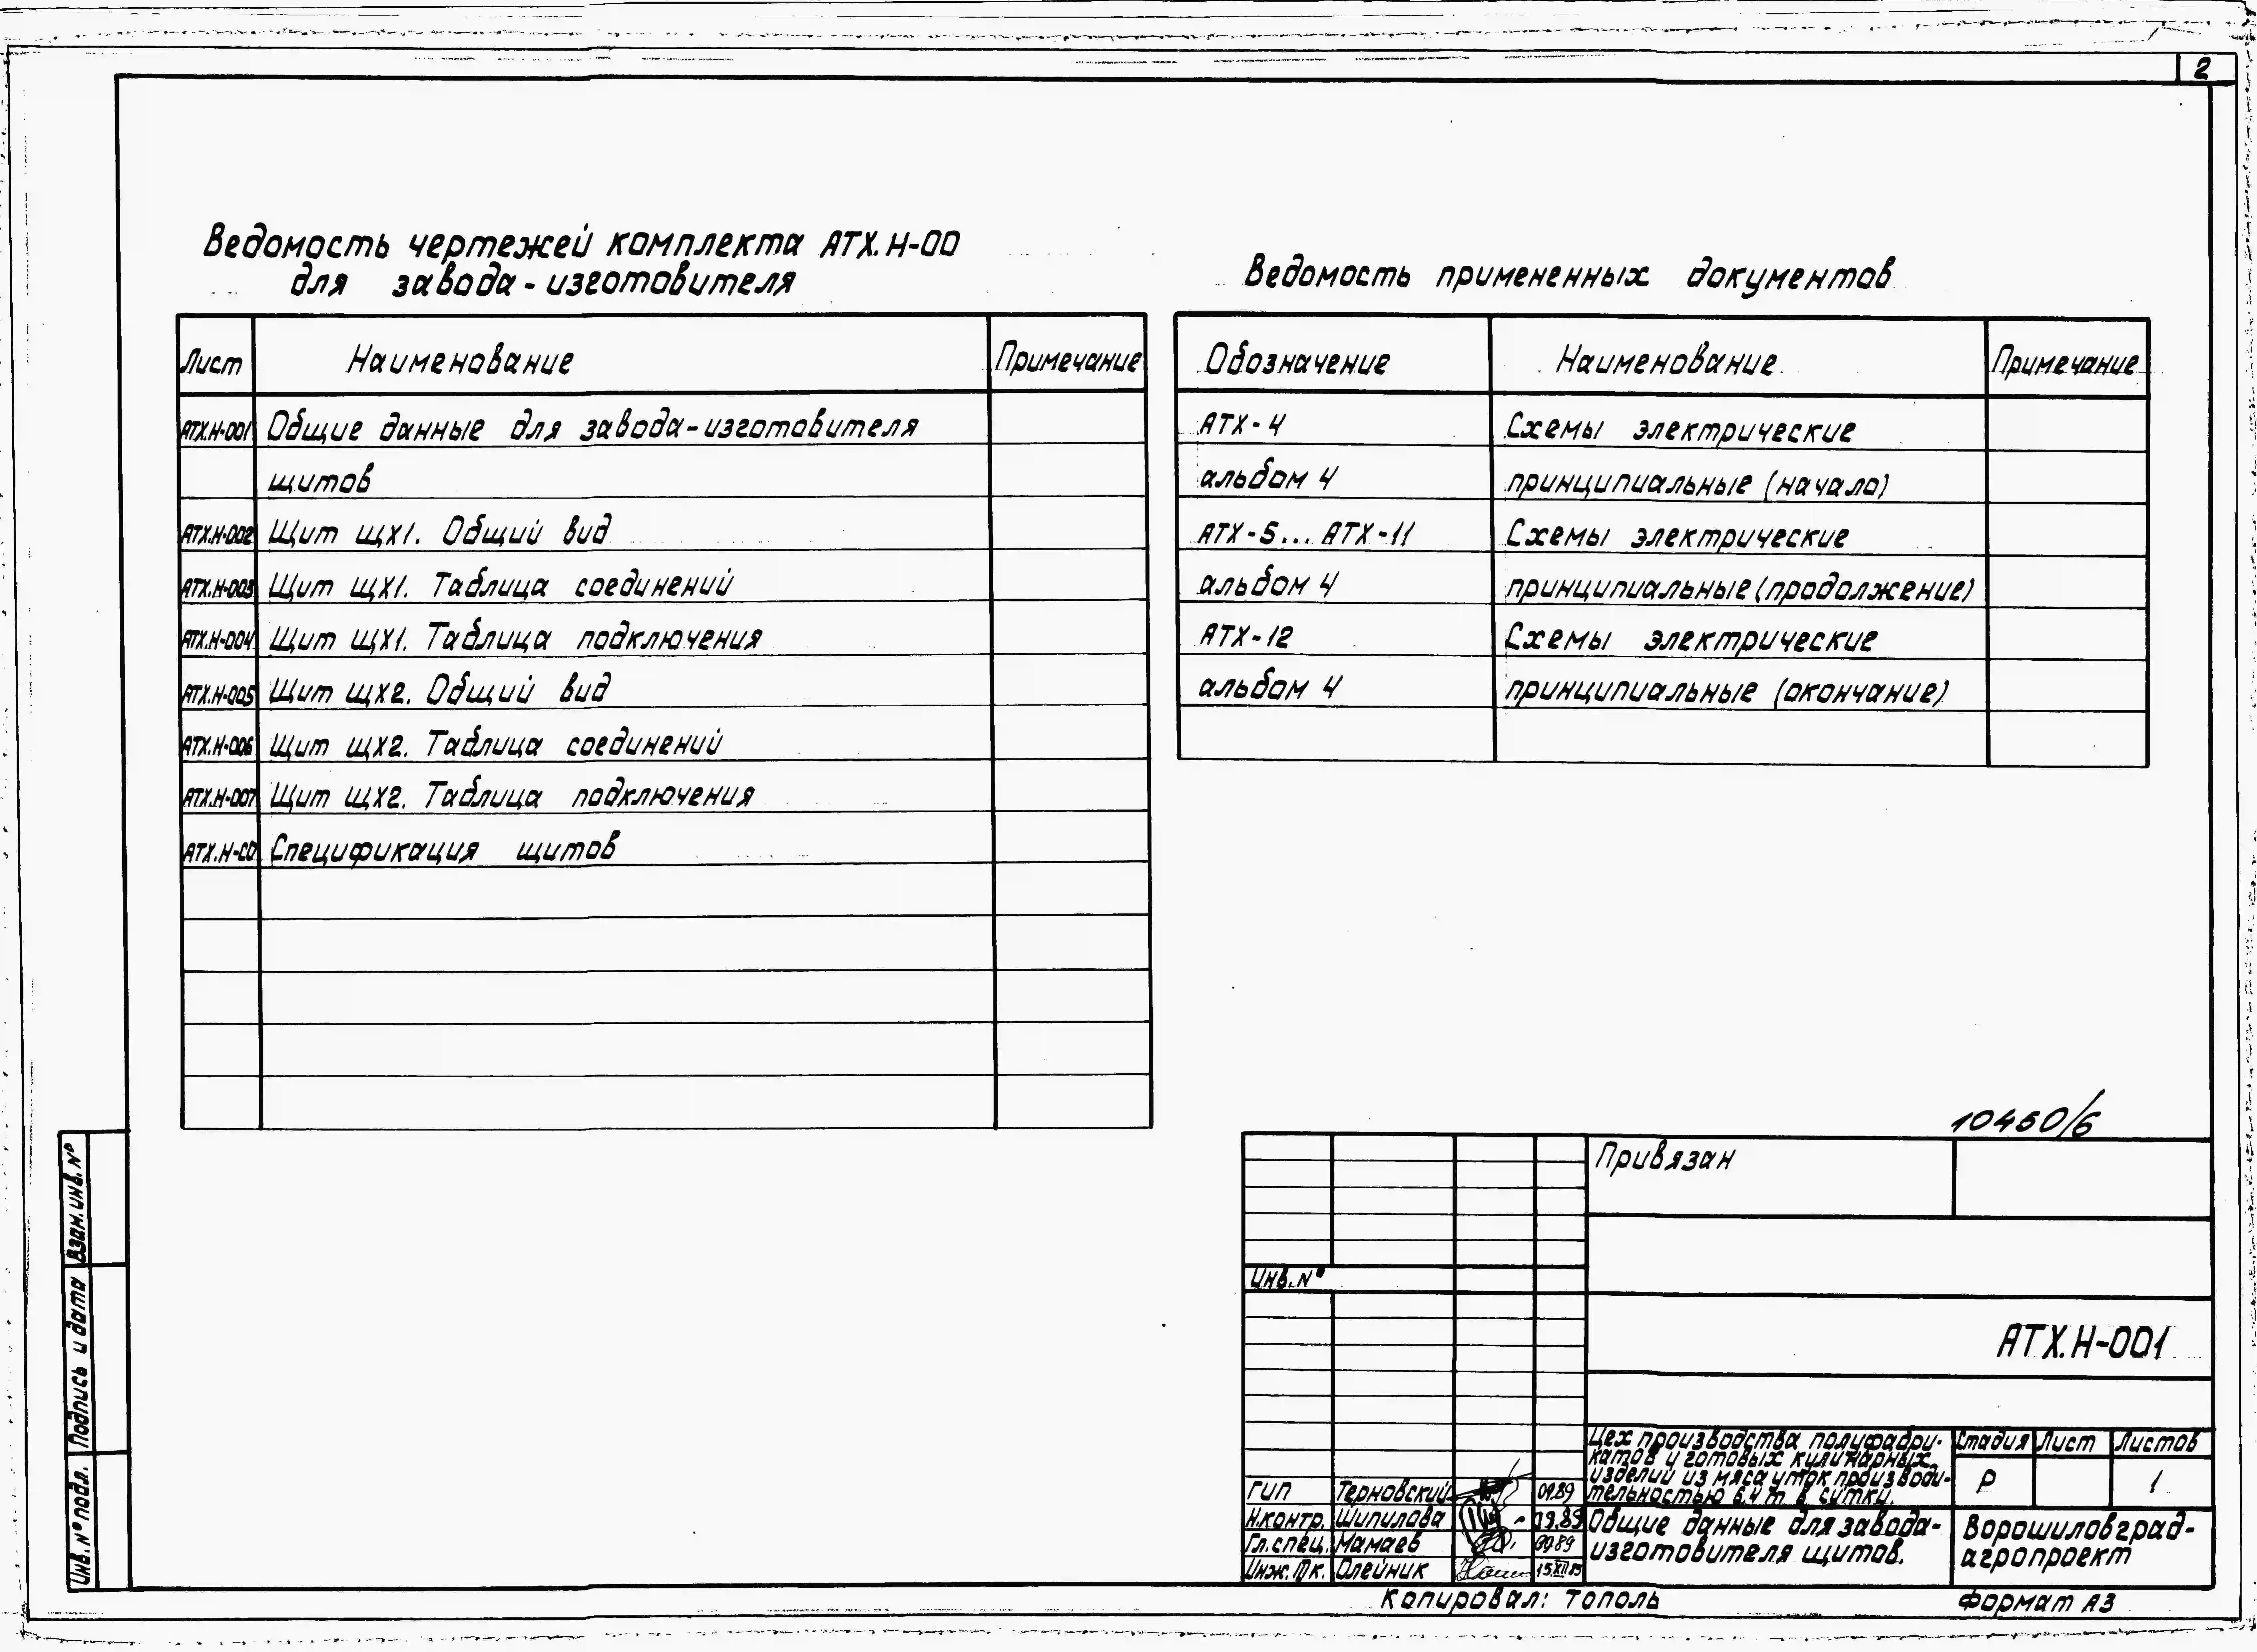 2
Ведомость чертежей комплекта АТХ.Н-00
для завода-изготовителя
Лист Наименование Примечание
АТХ.Н-001 Общие данные для завода-изготовителя
щитов
АТХ.Н-002 Щит ЩХ1. Общий вид
АТХ.Н-003 Щит ЩХ1. Таблица соединений
АТХ.Н-004 Щит ЩХ1. Таблица подключения
АТХ.Н-005 Щит ЩХ2. Общий вид
АТХ.Н-006 Щит ЩХ2. Таблица соединений
АТХ.Н-007 Щит ЩХ2. Таблица подключения
АТХ.Н-СО Спецификация щитов
Ведомость примененных документов
Обозначение Наименование Примечание
АТХ-4 Схемы электрические
альбом 4 принципиальные (начало)
АТХ-5...АТХ-11 Схемы электрические
альбом 4 принципиальные (продолжение)
АТХ-12 Схемы электрические
альбом 4 принципиальные (окончание)
10450/6
Привязан
Инв.№
АТХ.Н-001
Цех производства полуфабри-
катов и готовых кулинарных
изделий из мяса уток производи-
тельностью 6,4 т в сутки.
Стадия Лист Листов
Р 1
ГИП Терновский 09.89
Н.контр. Шипилова 09.89
Гл.спец. Мамаев 09.89
Инж.IIк. Олейник 15.XII.89
Общие данные для завода-
изготовителя щитов.
Ворошиловград-
агропроект
Копировал: Тополь Формат А3
Взам.инв.№
Подпись и дата
Инв.№подл.